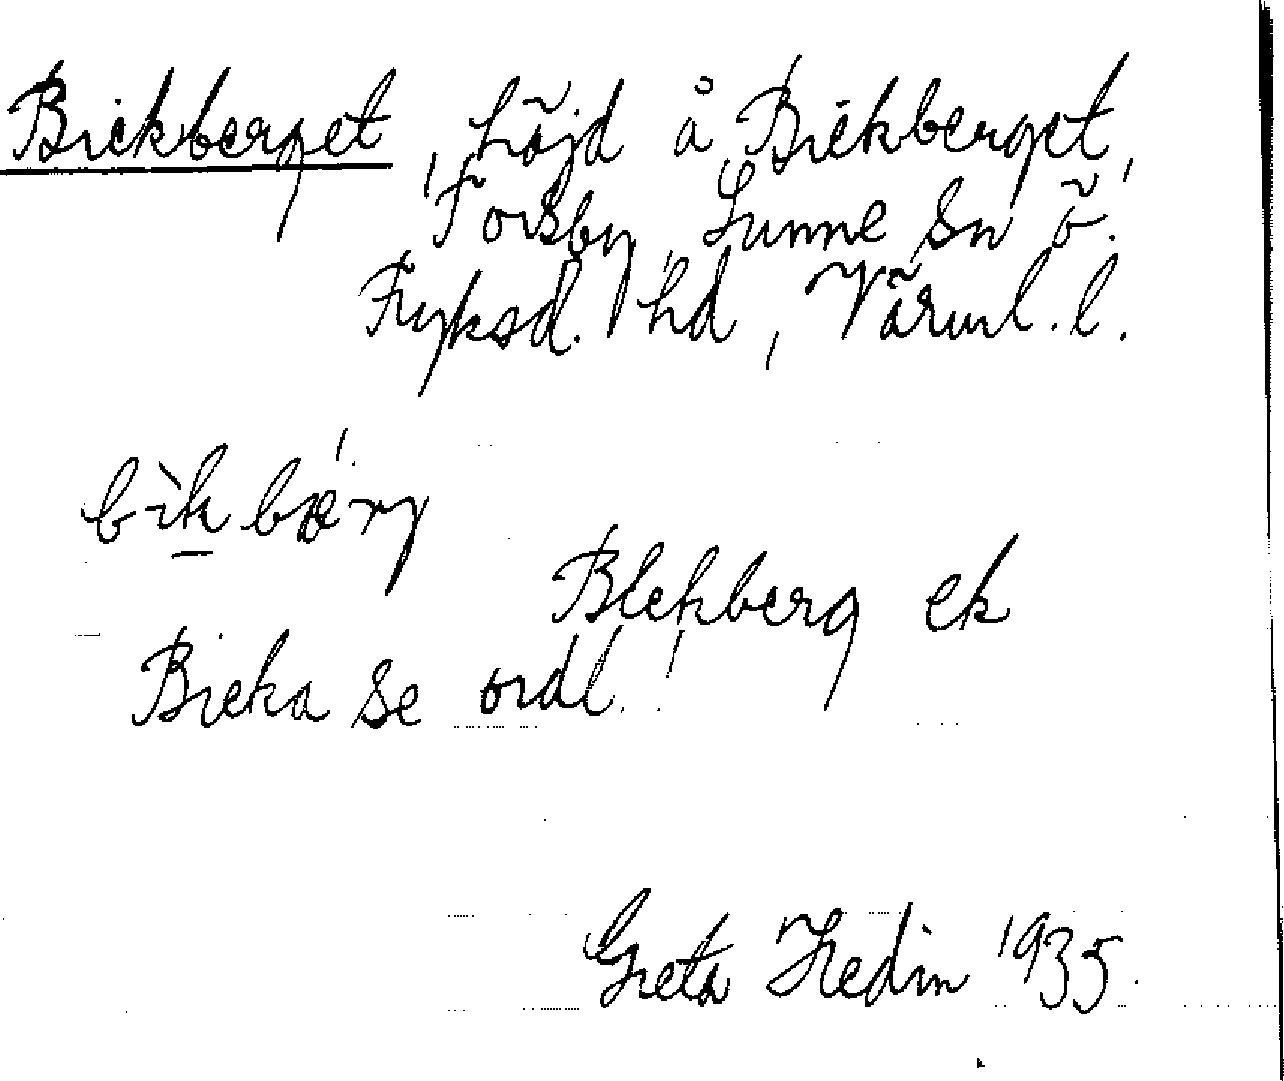 Bickberget, höjd å Bickberget,
Forsby, Sunne sn ö.
Fryksd. hd, Värml. l.
bìk bæ´rg
Blekberg ek
Bicka se ordl.!
Greta Hedin 1935.